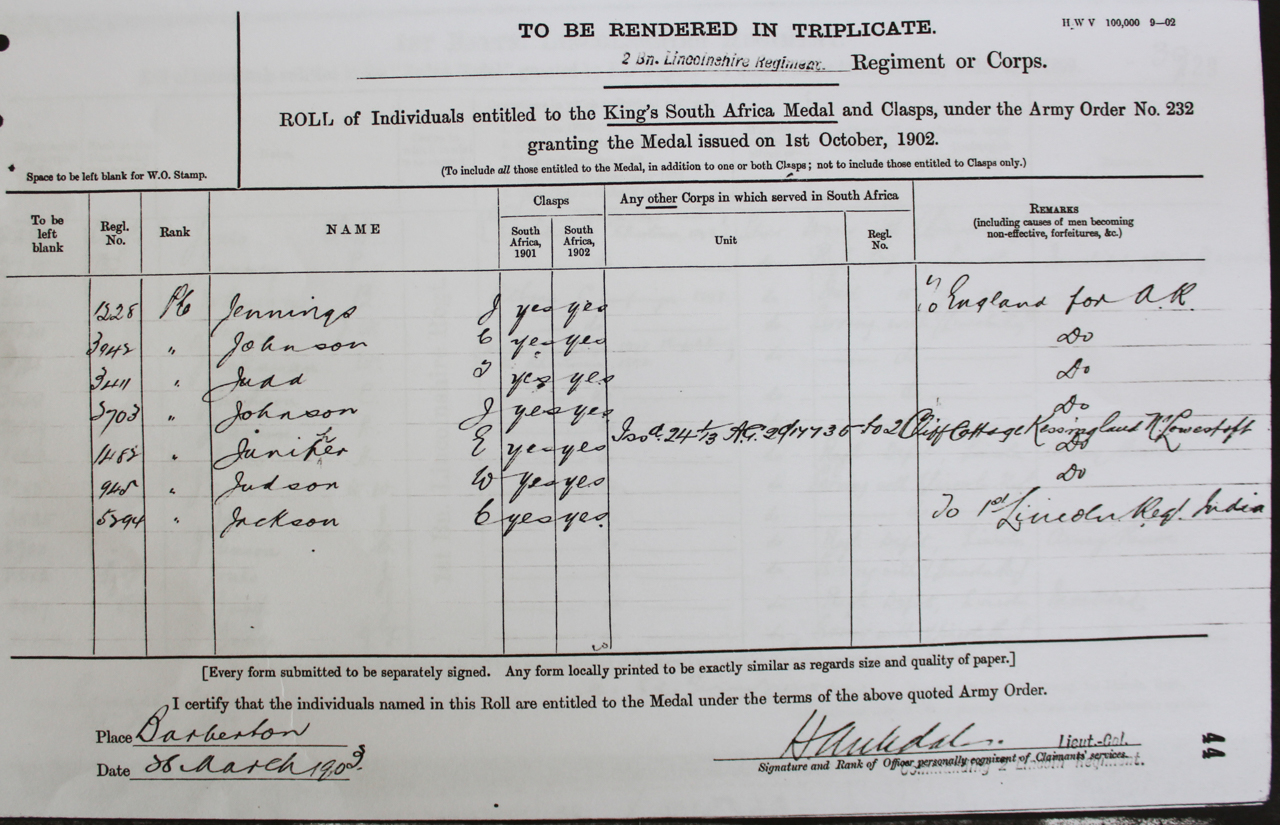 TO BE RENDERED IN TRIPLICATE.
H.W V 100,000 9—02
2 Bn. Lincolnshire Regiment. Regiment or Corps.
ROLL of Individuals entitled to the King's South Africa Medal and Clasps, under the Army Order No. 232
granting the Medal issued on 1st October, 1902.
(To include all those entitled to the Medal, in addition to one or both Clasps; not to include those entitled to Clasps only.)
* Space to be left blank for W.O. Stamp.
To be left blank Regl. No. Rank NAME Clasps South Africa, 1901 South Africa, 1902 Any other Corps in which served in South Africa Unit Regl. No. REMARKS (including causes of men becoming non-effective, forfeitures, &c.)
1328 Pte Jennings J yes yes To England for A.R.
3942 " Johnson C yes yes Do
3411 " Judd yes yes Do
3703 " Johnson J yes yes Do
Issd. 24/1/13 Cliff Cottage Kessingland Nr Lowestoft
1482 " Juniper E yes yes Do
945 " Judson W yes yes Do
5294 " Jackson C yes yes To 1st Lincoln Regt. India
[Every form submitted to be separately signed. Any form locally printed to be exactly similar as regards size and quality of paper.]
I certify that the individuals named in this Roll are entitled to the Medal under the terms of the above quoted Army Order.
Place Barberton
Lieut.-Col.
Date March 1903.
Signature and Rank of Officer personally cognizant of Claimants' services.
Commanding 2 Lincoln Regiment.
44